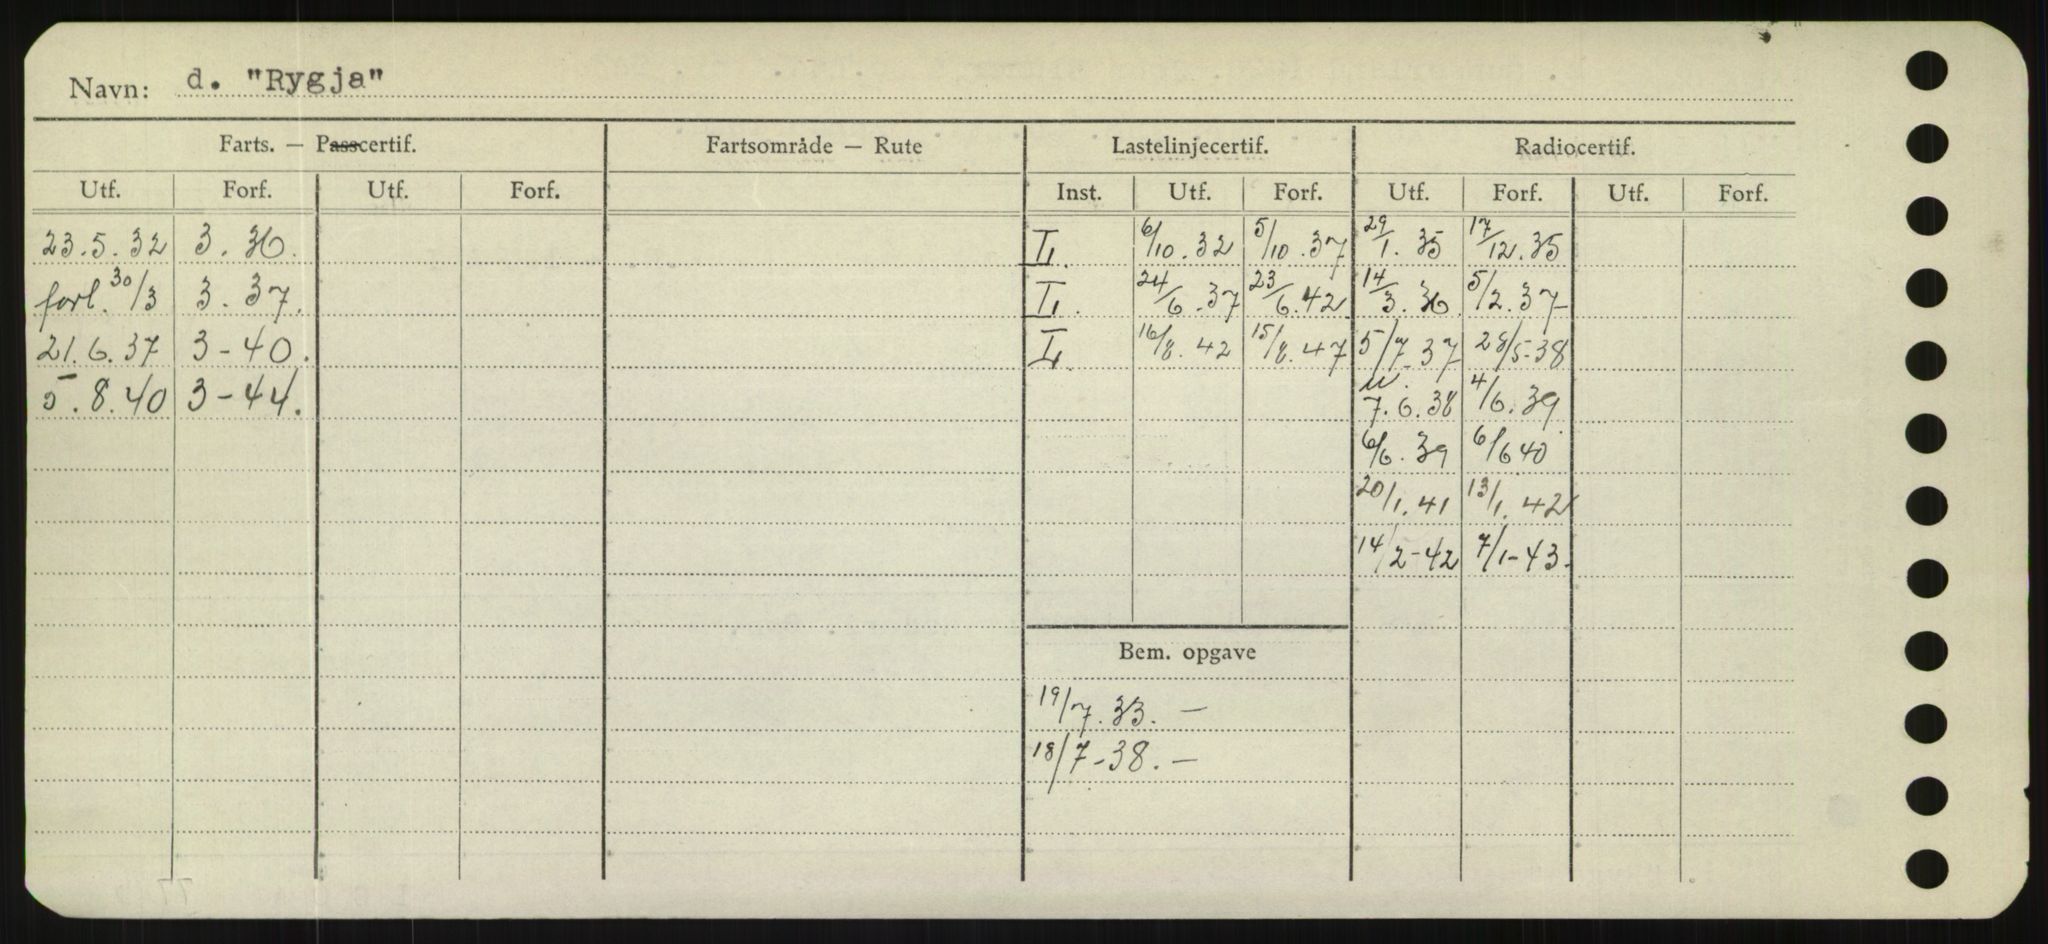 Navn: d. "Rygja"
Farts. — Passcertif. Fartsområde — Rute Lastelinjecertif. Radiocertif.
Utf. Forf. Utf. Forf. Inst. Utf. Forf. Utf. Forf. Utf. Forf.
23.5.32 3.36. I. 6/10.32 5/10.37 29/1.35 17/12.35
forl. 30/3 3.37. I. 24/6.37 23/6.42 14/3.36 5/2.37
21.6.37 3-40. I. 16/8.42 15/8.47 5/7.37 28/5-38
5.8.40 3-44. 7.6.38 4/6.39
6/6.39 6/6 40
20/1.41 13/1.42
14/2-42 7/1-43.
Bem. opgave
19/7.33. —
18/7-38. —